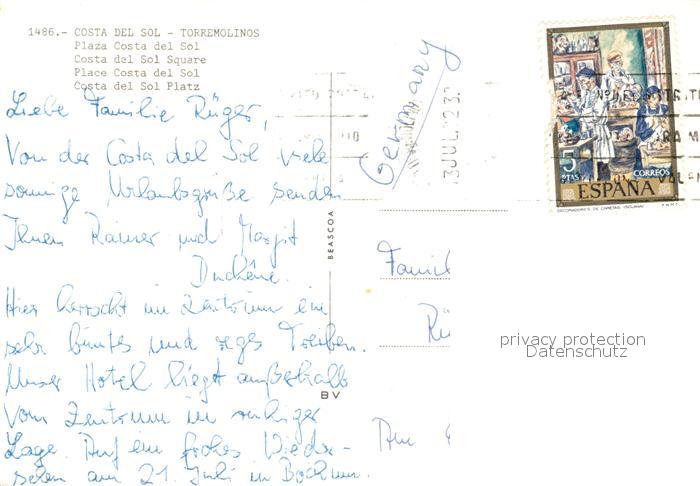 1486.- COSTA DEL SOL - TORREMOLINOS
Plaza Costa del Sol
Costa del Sol Square
Place Costa del Sol
Costa del Sol Platz
Liebe Familie Rüger,
Von der Costa del Sol viele
sonnige Urlaubsgrüße senden
Ihnen Rainer und Margit
Duchêne.
Hier herrscht im Zentrum ein
sehr buntes und reges Treiben.
Unser Hotel liegt außerhalb
vom Zentrum in ruhiger
Lage. Auf ein frohes Wieder-
sehen am 21. Juli in Bochum.
BEASCOA
BV
Germany
13 JUL 23
5
PTAS
CORREOS
ESPAÑA
Famil
Rü
Am
privacy protection
Datenschutz